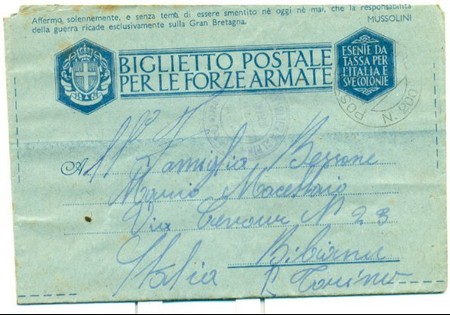 Affermo, solennemente, e senza tema di essere smentito nè oggi nè mai, che la responsabilità
della guerra ricade esclusivamente sulla Gran Bretagna.
MUSSOLINI
BIGLIETTO POSTALE
PER LE FORZE ARMATE
ESENTE DA
TASSA PER
L'ITALIA E
SVE COLONIE
POS
A
Famiglia Bessone
Mario
Via Cavour N 23
Bibiana
Italia
Torino